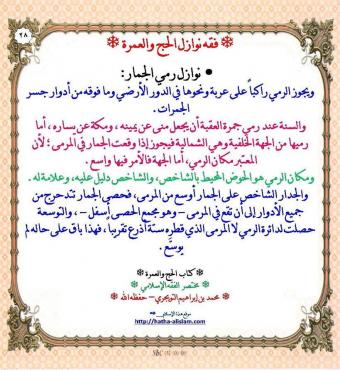 ٢٨
❄ فقه نوازل الحج والعمرة ❄
● نوازل رمي الجمار:
ويجوز الرمي راكباً على عربة ونحوها في الدور الأرضي وما فوقه من أدوار جسر
الجمرات.
والسنة عند رمي جمرة العقبة أن يجعل منى عن يمينه، ومكة عن يساره، أما
رميها من الجهة الخلفية وهي الشمالية فيجوز إذا وقعت الجمار في المرمى؛ لأن
المعتبر مكان الرمي، أما الجهة فالأمر فيها واسع.
ومكان الرمي هو الحوض المحيط بالشاخص، والشاخص دليل عليه، وعلامة له.
والجدار الشاخص على الجمار أوسع من المرمى، فحصى الجمار تتدحرج من
جميع الأدوار إلى أن تقع في المرمى – وهو مجمع الحصى أسفل –، والتوسعة
حصلت لدائرة الرمي لا المرمى الذي قطره ستة أذرع تقريبا، فهذا باق على حاله لم
يوسَّع.
❄ كتاب الحج والعمرة ❄
❄ مختصر الفقه الإسلامي ❄
❄ محمد بن إبراهيم التويجري – حفظه الله ❄
موقع هذا الإسلام
http://hatha-alislam.com